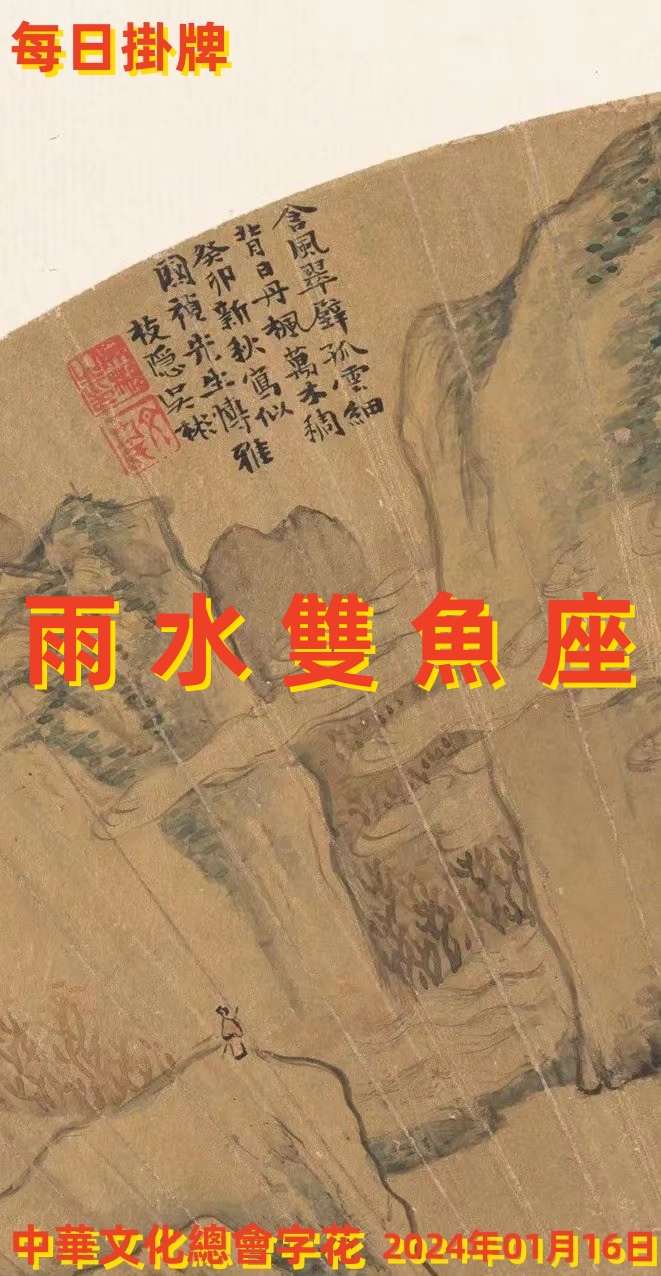 每日掛牌
含風翠壁孤雲細
背日丹楓萬木稠
癸卯新秋寫似
國禎先生博雅
枝隱吳彬
雨水雙魚座
中華文化總會字花 2024年01月16日